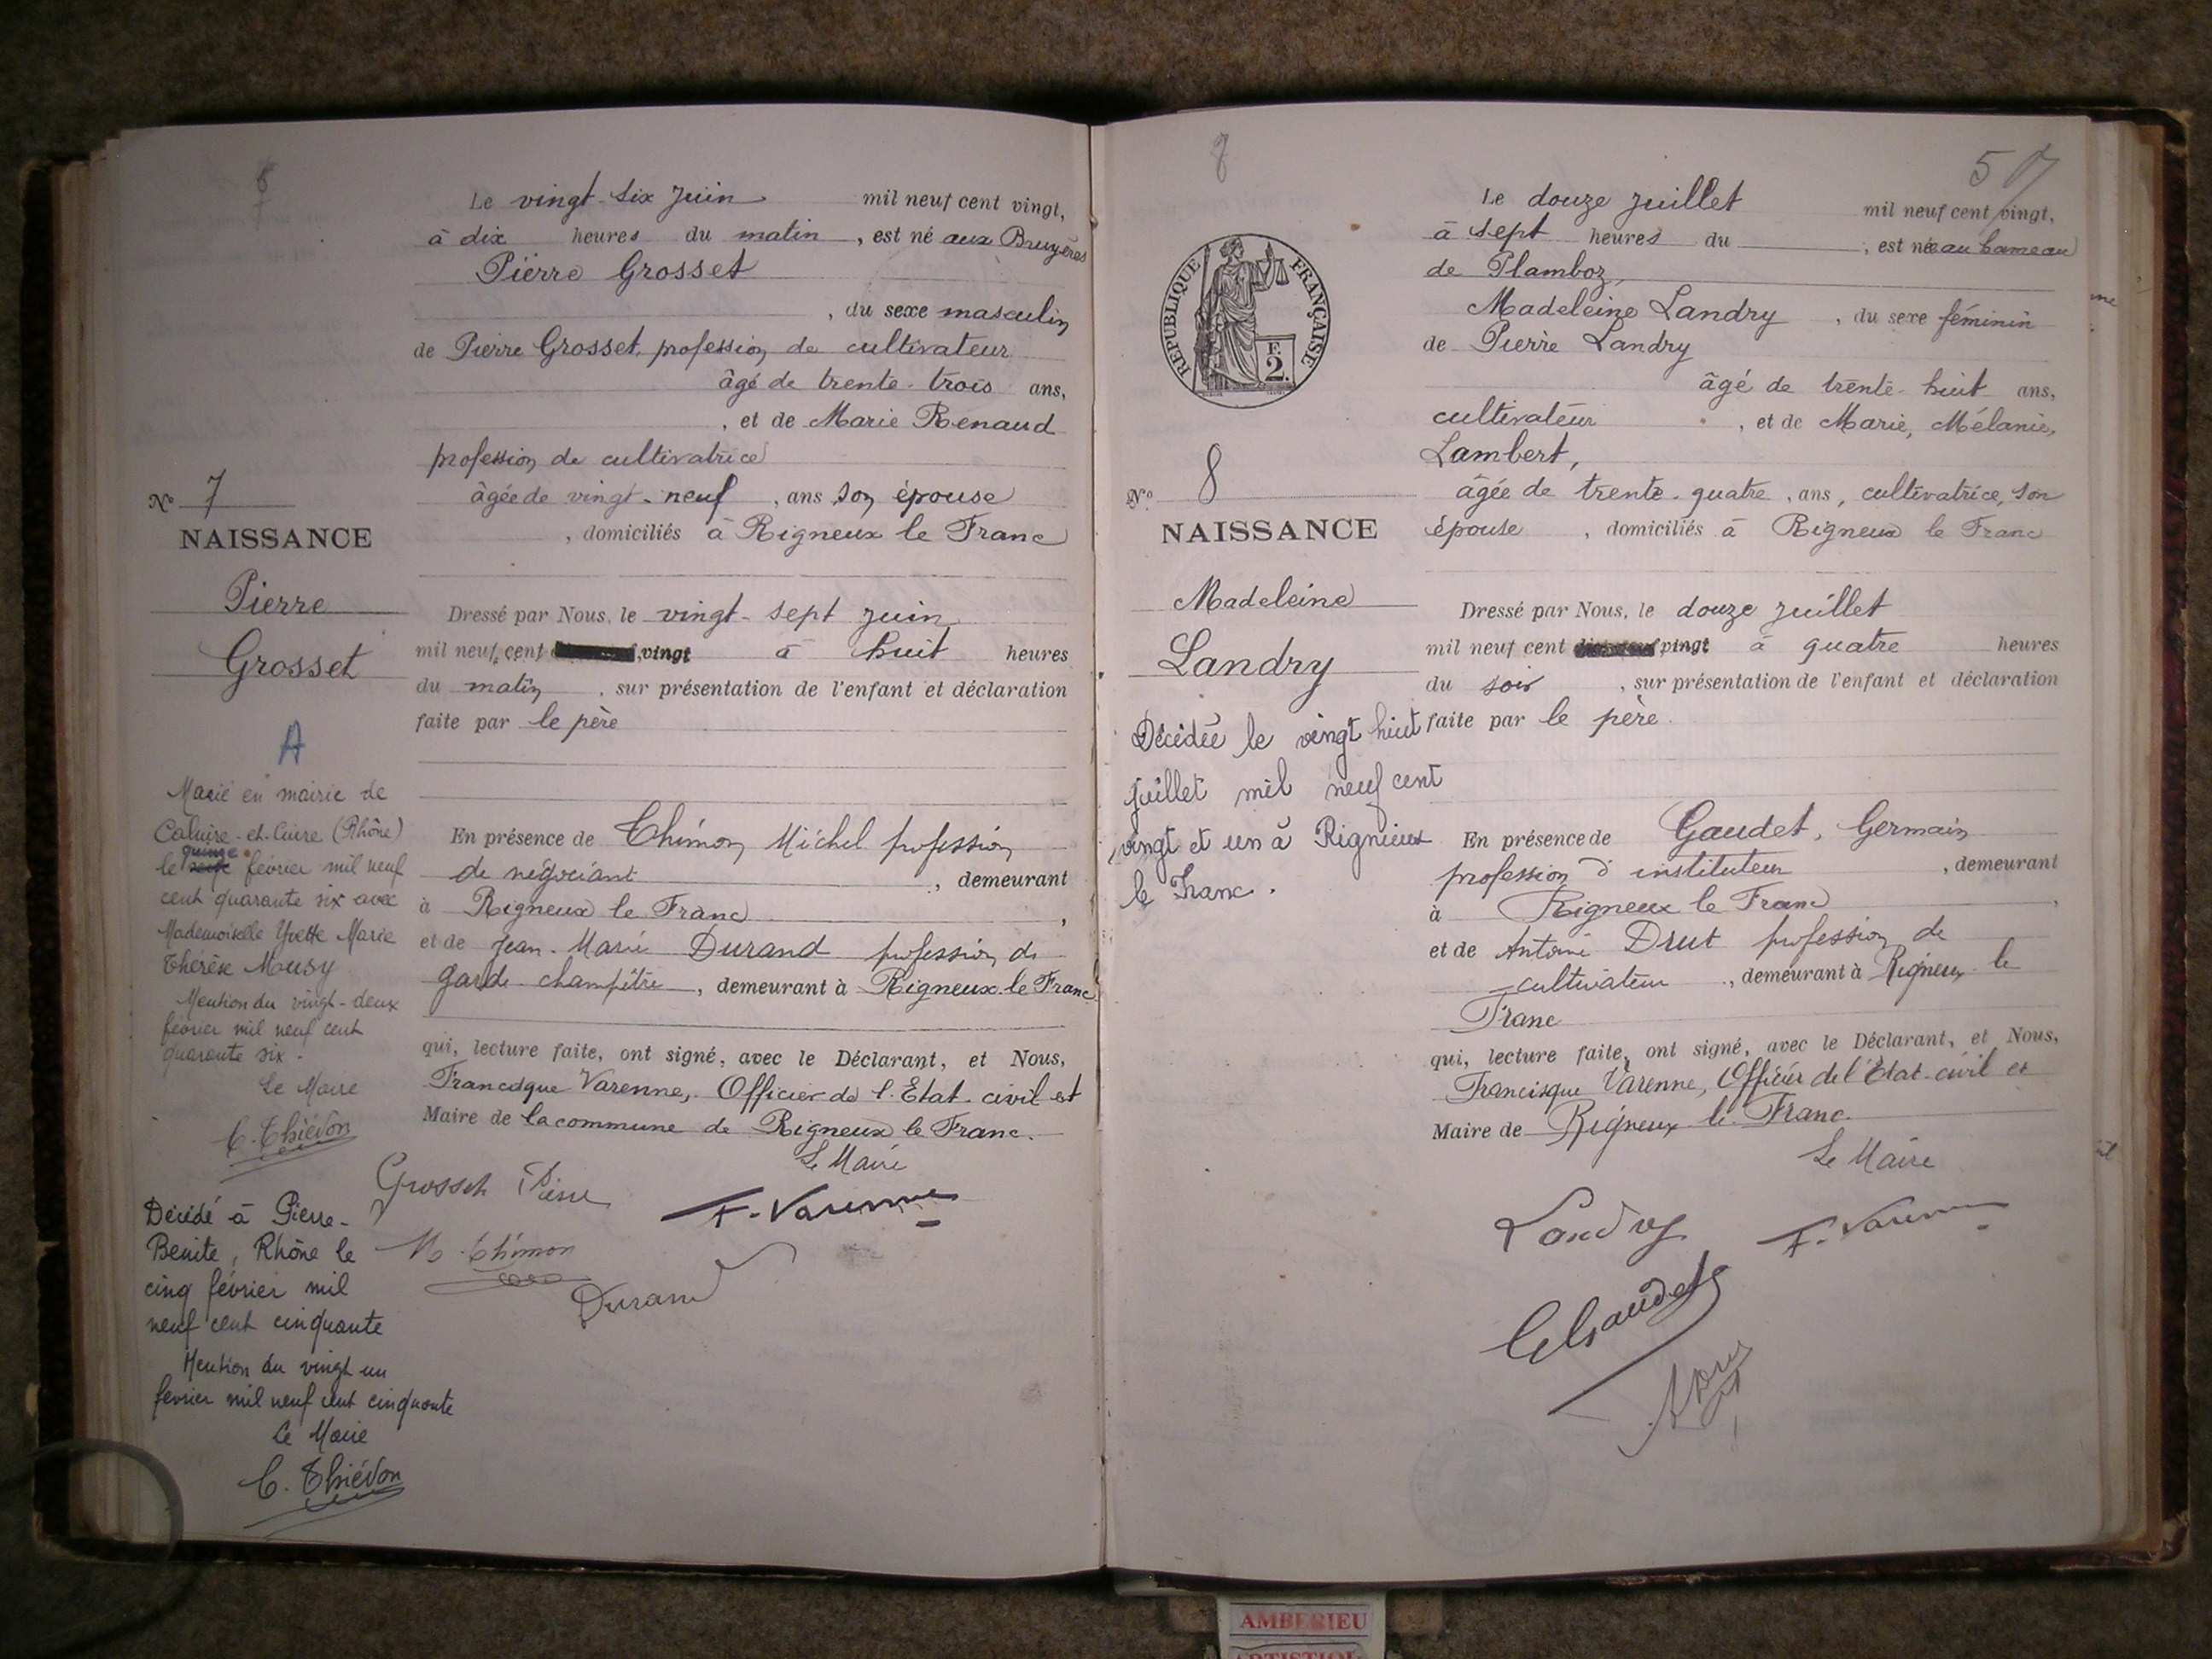 Le vingt-six juin mil neuf cent vingt,
à dix heures du matin, est né aux Bruyères
Pierre Grosset
, du sexe masculin
de Pierre Grosset, profession de cultivateur
âgé de trente-trois ans,
, et de Marie Renaud
profession de cultivatrice
âgée de vingt-neuf, ans son épouse
, domiciliés à Rigneux le Franc
Nº 7
NAISSANCE
Pierre
Grosset
Dressé par Nous, le vingt-sept juin
mil neuf cent vingt à huit heures
du matin, sur présentation de l'enfant et déclaration
faite par le père
A
Marié en mairie de
Caluire-et-Cuire (Rhône)
quinze
le février mil neuf
cent quarante six avec
Mademoiselle Yvette Marie
Thérèse Musy
Mention du vingt-deux
février mil neuf cent
quarante six.
Le Maire
C. Thiévon
En présence de Thimon Michel profession
de négociant, demeurant
à Rigneux le Franc,
et de Jean-Marie Durand profession de
garde-champêtre, demeurant à Rigneux-le-Franc
qui, lecture faite, ont signé, avec le Déclarant, et Nous,
Francisque Varenne, Officier de l'Etat-civil et
Maire de la commune de Rigneux le Franc.
Le Maire
Grosset Pierre
F. Varenne
M. Thimon
Durand
Décédé à Pierre-
Bénite, Rhône le
cinq février mil
neuf cent cinquante
Mention du vingt un
février mil neuf cent cinquante
Le Maire
C. Thiévon
8
57
Le douze juillet mil neuf cent vingt,
à sept heures du, est née au hameau
de Plamboz,
Madeleine Landry, du sexe féminin
de Pierre Landry
âgé de trente-huit ans,
cultivateur, et de Marie, Mélanie,
Lambert,
âgée de trente-quatre, ans, cultivatrice, son
épouse, domiciliés à Rigneux le Franc
RÉPUBLIQUE FRANÇAISE
F.
2.
Nº 8
NAISSANCE
Madeleine
Landry
Décédée le vingt huit
juillet mil neuf cent
vingt et un à Rignieux
le Franc.
Dressé par Nous, le douze juillet
mil neuf cent vingt à quatre heures
du soir, sur présentation de l'enfant et déclaration
faite par le père.
En présence de Gaudet, Germain
profession d'instituteur, demeurant
à Rigneux le Franc,
et de Antoine Drut profession de
cultivateur, demeurant à Rigneux le
Franc
qui, lecture faite, ont signé, avec le Déclarant, et Nous,
Francisque Varenne, Officier de l'Etat-civil et
Maire de Rigneux le Franc.
Le Maire
Landry
F. Varenne
G Gaudet
A Drut
AMBERIEU